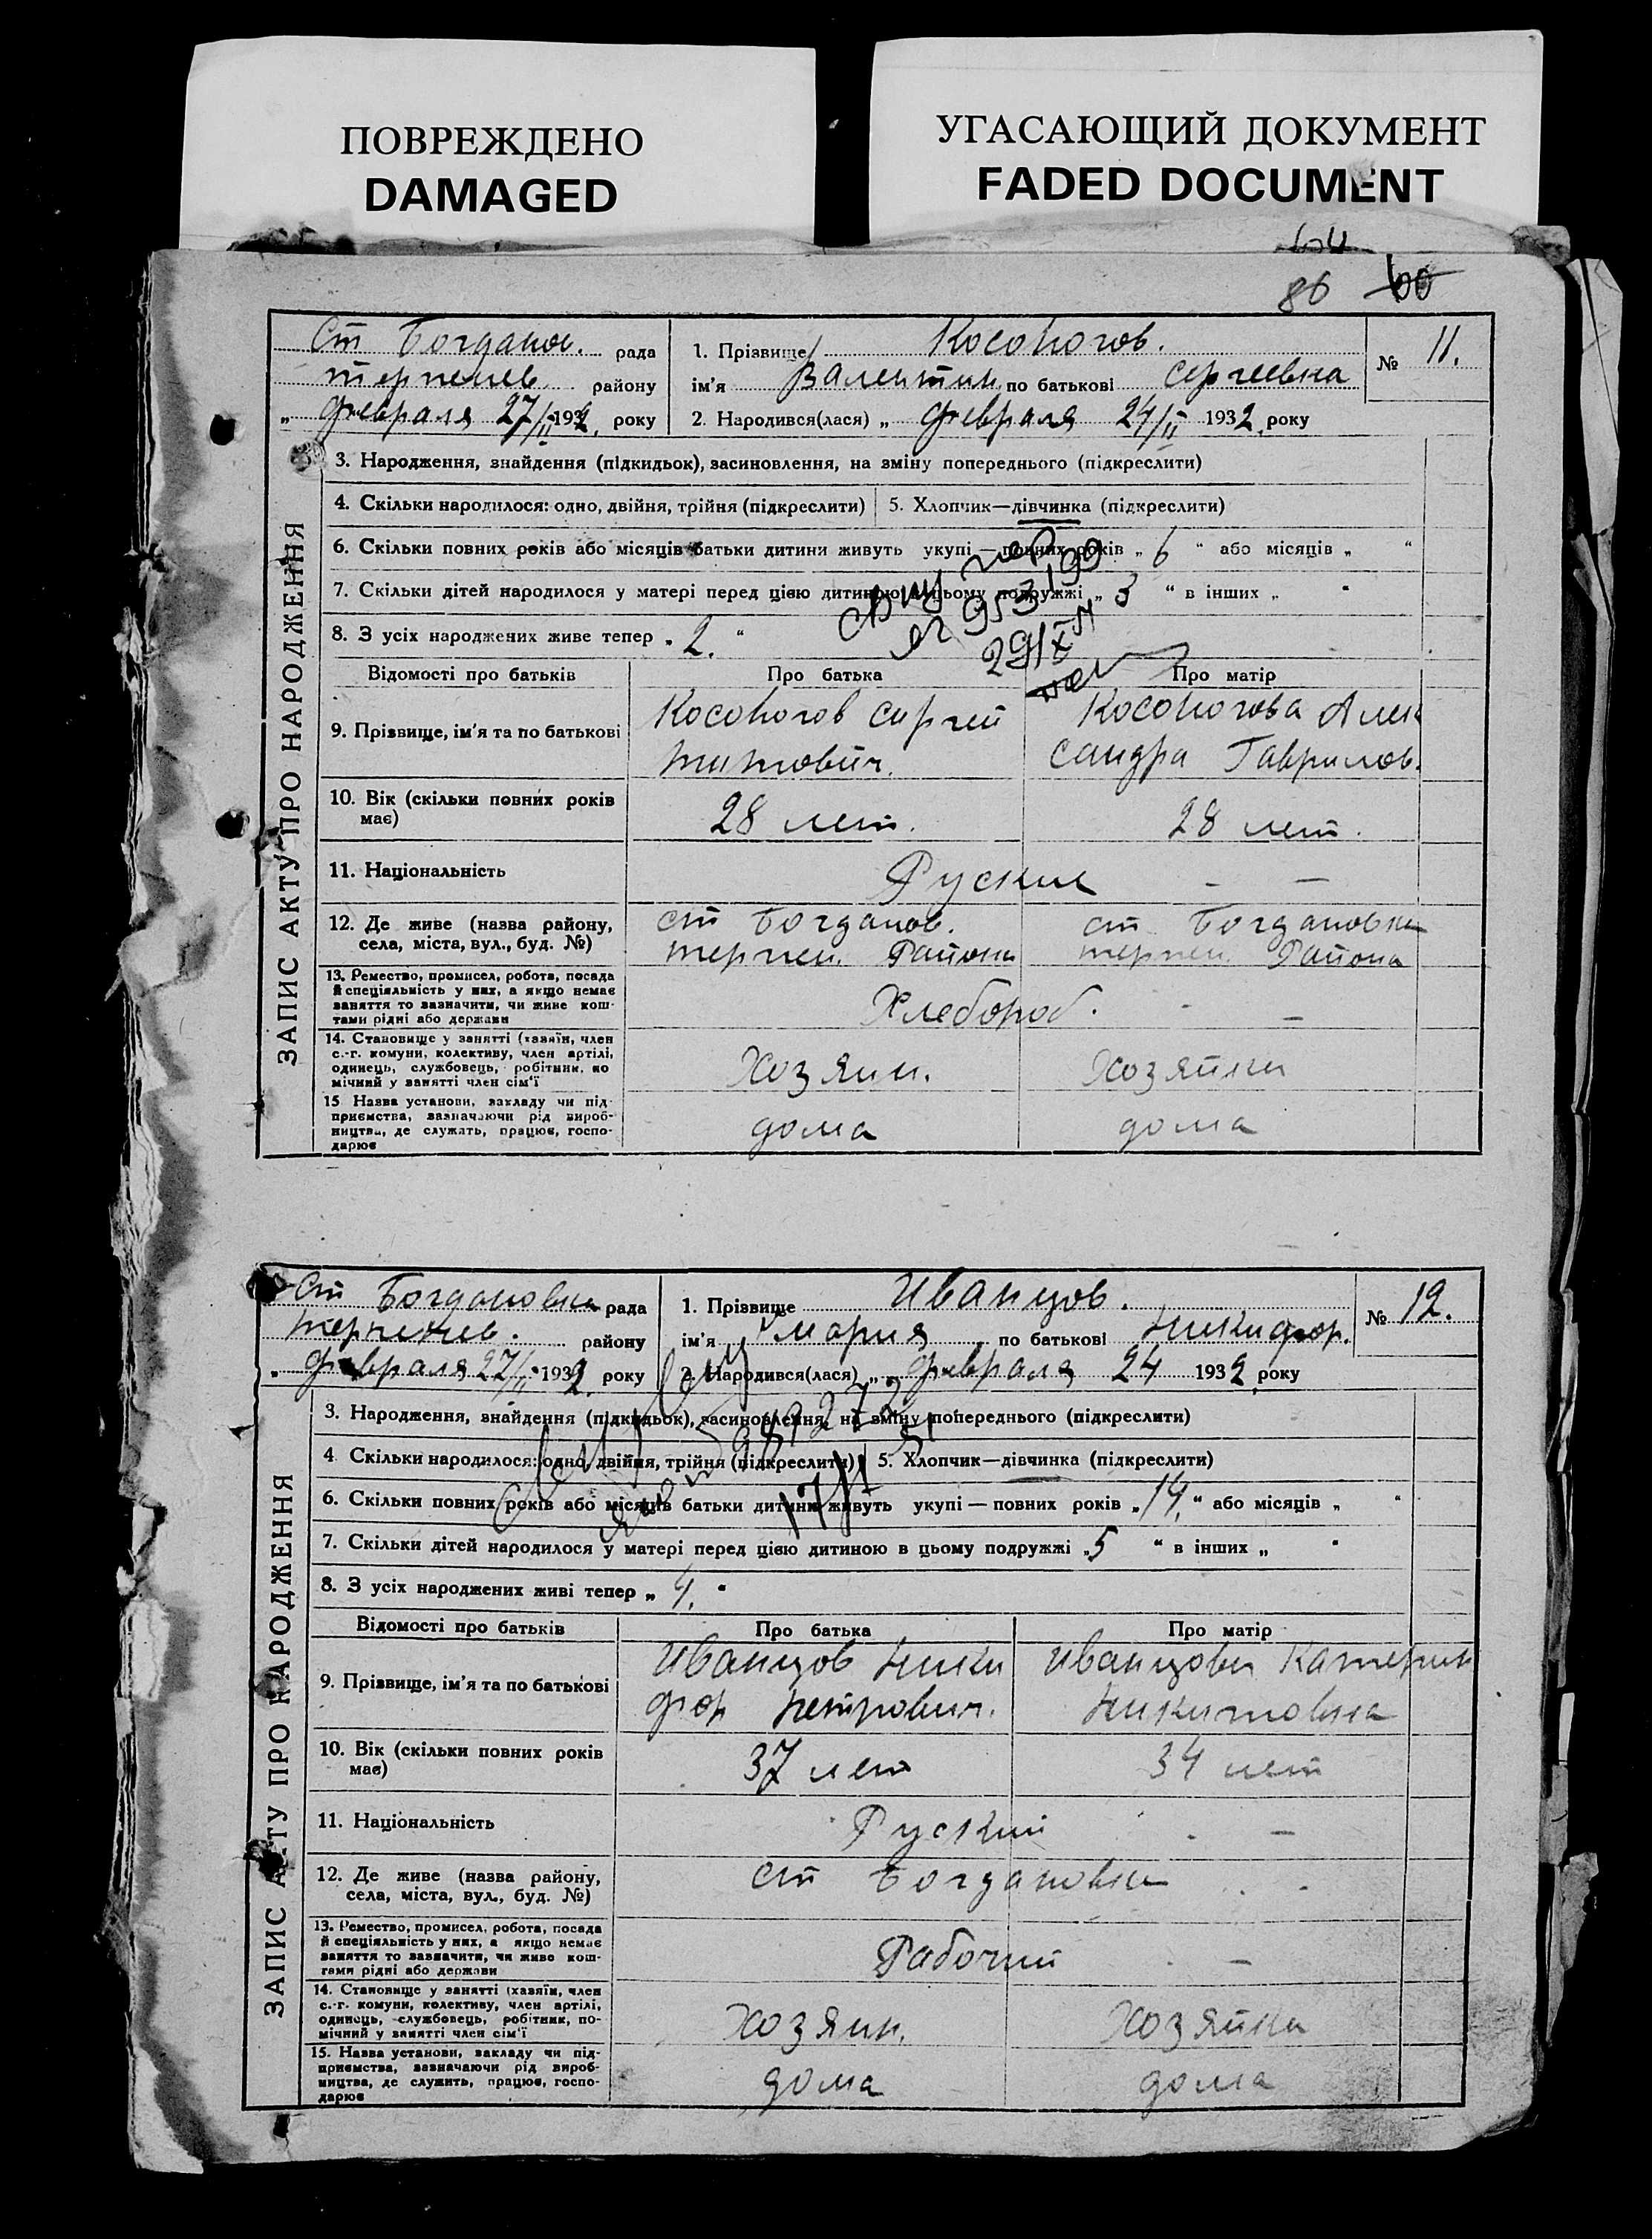 ПОВРЕЖДЕНО
DAMAGED
УГАСАЮЩИЙ ДОКУМЕНТ
FADED DOCUMENT
86 60
ЗАПИС АКТУ ПРО НАРОДЖЕННЯ
Ст Богданов. рада
терпенев. району
„ февраля 27/II 1932. року
1. Прізвище Косоногов.
ім'я Валентин. по батькові Сергеевна
2. Народився(лася) „ февраля 24/II 1932. року
№ 11.
3. Народження, знайдення (підкидьок), засиновлення, на зміну попереднього (підкреслити)
4. Скільки народилося: одно, двійня, трійня (підкреслити) 5. Хлопчик—дівчинка (підкреслити)
6. Скільки повних років або місяців батьки дитини живуть укупі — повних років „ 6 “ або місяців „ “
7. Скільки дітей народилося у матері перед цією дитиною в цьому подружжі „ 3 “ в інших „ “
8. З усіх народжених живе тепер „ 2. “
Відомості про батьків Про батька Про матір
9. Прізвище, ім'я та по батькові
Косоногов Сергей
титович.
Косоногова Алек
сандра Гаврилов.
10. Вік (скільки повних років
має)
28 лет. 28 лет.
11. Національність Руские — —
12. Де живе (назва району,
села, міста, вул., буд. №)
ст Богданов.
терпен. Района
ст Богдановка
терпен. Района
13. Ремество, промисел, робота, посада
й спеціяльність у них, а якщо немає
заняття то зазначити, чи живе кош-
тами рідні або держави
Хлебороб. —
14. Становище у занятті (хазяїн, член
с.-г. комуни, колективу, член артілі,
одинець, службовець, робітник, по
мічний у занятті член сім'ї
Хозяин. Хозяйка
15 Назва установи, закладу чи під-
приємства, зазначаючи рід вироб-
ництва, де служать, працює, госпо-
дарює
дома дома
ЗАПИС АКТУ ПРО НАРОДЖЕННЯ
Ст Богдановка рада
терпенев. району
„ февраля 27/II 1932. року
1. Прізвище Иванцов.
ім'я Мария по батькові Никифор.
2. Народився(лася) „ февраля 24 1932. року
№ 12.
3. Народження, знайдення (підкидьок), засиновлення, на зміну попереднього (підкреслити)
4. Скільки народилося: одно, двійня, трійня (підкреслити) 5. Хлопчик—дівчинка (підкреслити)
6. Скільки повних років або місяців батьки дитини живуть укупі — повних років „ 14. “ або місяців „ “
7. Скільки дітей народилося у матері перед цією дитиною в цьому подружжі „ 5 “ в інших „ “
8. З усіх народжених живі тепер „ 4. “
Відомості про батьків Про батька Про матір
9. Прізвище, ім'я та по батькові
Иванцов Ники
фор Петрович.
Иванцова Катерин
Никитовна
10. Вік (скільки повних років
має)
37 лет 34 лет
11. Національність Руский —
12. Де живе (назва району,
села, міста, вул., буд. №)
ст Богдановка
13. Ремество, промисел, робота, посада
й спеціяльність у них, а якщо немає
заняття то зазначити, чи живе кош-
тами рідні або держави
Рабочий —
14. Становище у занятті (хазяїн, член
с.-г. комуни, колективу, член артілі,
одинець, службовець, робітник, по-
мічний у занятті член сім'ї
Хозяин. Хозяйка
15. Назва установи, закладу чи під-
приємства, зазначаючи рід вироб-
ництва, де служить, працює, госпо-
дарює
дома дома